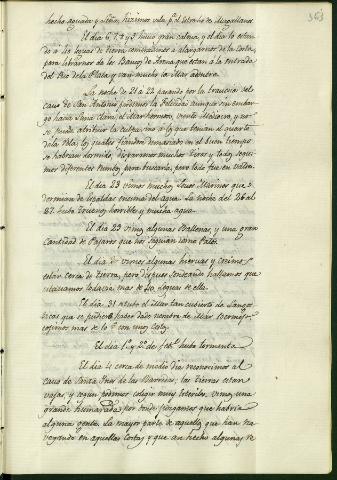 363
hecho aguada y Leña, hizimos vela p.ª el Estrecho de Magallanes.
El dia 6, 7, 8 y 9 huvo gran calma, y el dia 10 estando
a 40 leguas de tierra comenzamos a alargarnos de la Costa,
para librarnos de los Bancos de Arena que estan a la entrada
del Rio de la Plata y van mucho la Mar adentro.
La noche de 21 a 22 pasando por la travesia del
cavo de San Antonio perdimos la Felicidad aunque sin embargo
hacia Luna clara, el Mar hermoso, viento
se puede atribuir la culpa sino a lo que tenian el quarto
de la Vela, los quales fiandose demasiado en el buen tiempo
se habrian dormido, disparamos muchos tiros y
mos diferentes rumbos para buscarla, pero todo fue en valde.
El dia 23 vimos muchos Lovos Marinos que
dormian de espaldas encima del agua. La noche del 26 al
27 hubo truenos horribles y mucha agua.
El dia 29 vimos algunas Ballenas, y una gran
cantidad de Pajaros que nos seguian como Patos.
El dia vimos algunas hiervas y creimos
estar cerca de tierra, pero despues sondeando hallamos que
estavamos todavia mas de 40 leguas de ella.
El dia 31 vimos el Mar tan cubierto de Langostas
que se pudiera haber dado nombre de Mar Bermejo,
cogimos mas de con unos Cestos.
El dia 1.º y 2.º de feb.º hubo tormenta.
El dia 4 cerca de medio dia reconocimos el
cavo de Santa Ines de las Barreras, las tierras estan
vajas, y segun podimos colegir muy esteriles, vimos una
grande humareda por donde juzgamos que habria
alguna gente. La mayor parte de aquellos que han navegado
en aquellas costas y que an hecho algunas Re